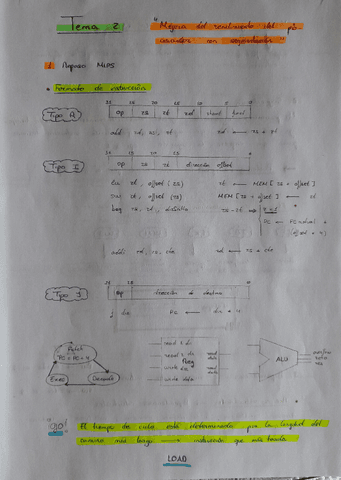 Tema 2
"Mejora del rendimiento del pro-
cesador con segmentación"
1. Repaso MIPS
• Formato de instrucción
Tipo R
op rs rt rd shamt funct
add rd, rs, rt rd ← rs + rt
Tipo I
op rs rt dirección offset
lw rt, offset (rs) rt ← MEM [rs + offset]
sw rt, offset (rs) MEM [rs + offset] ← rt
beq rs, rt, rs - rt →
PC ← PC actual +
(offset * 4)
addi rd, rs,
rd ← rs +
Tipo J
op dirección destino
j dir PC ← dir * 4
Fetch
PC = PC + 4
Exec
Decode
read 1 dir
read 2 dir
write dir
write data
Reg
read data
read data
ALU
zero
res
OJO
El tiempo de ciclo está determinado por la longitud del
camino más largo → instrucción que más tarda
LOAD